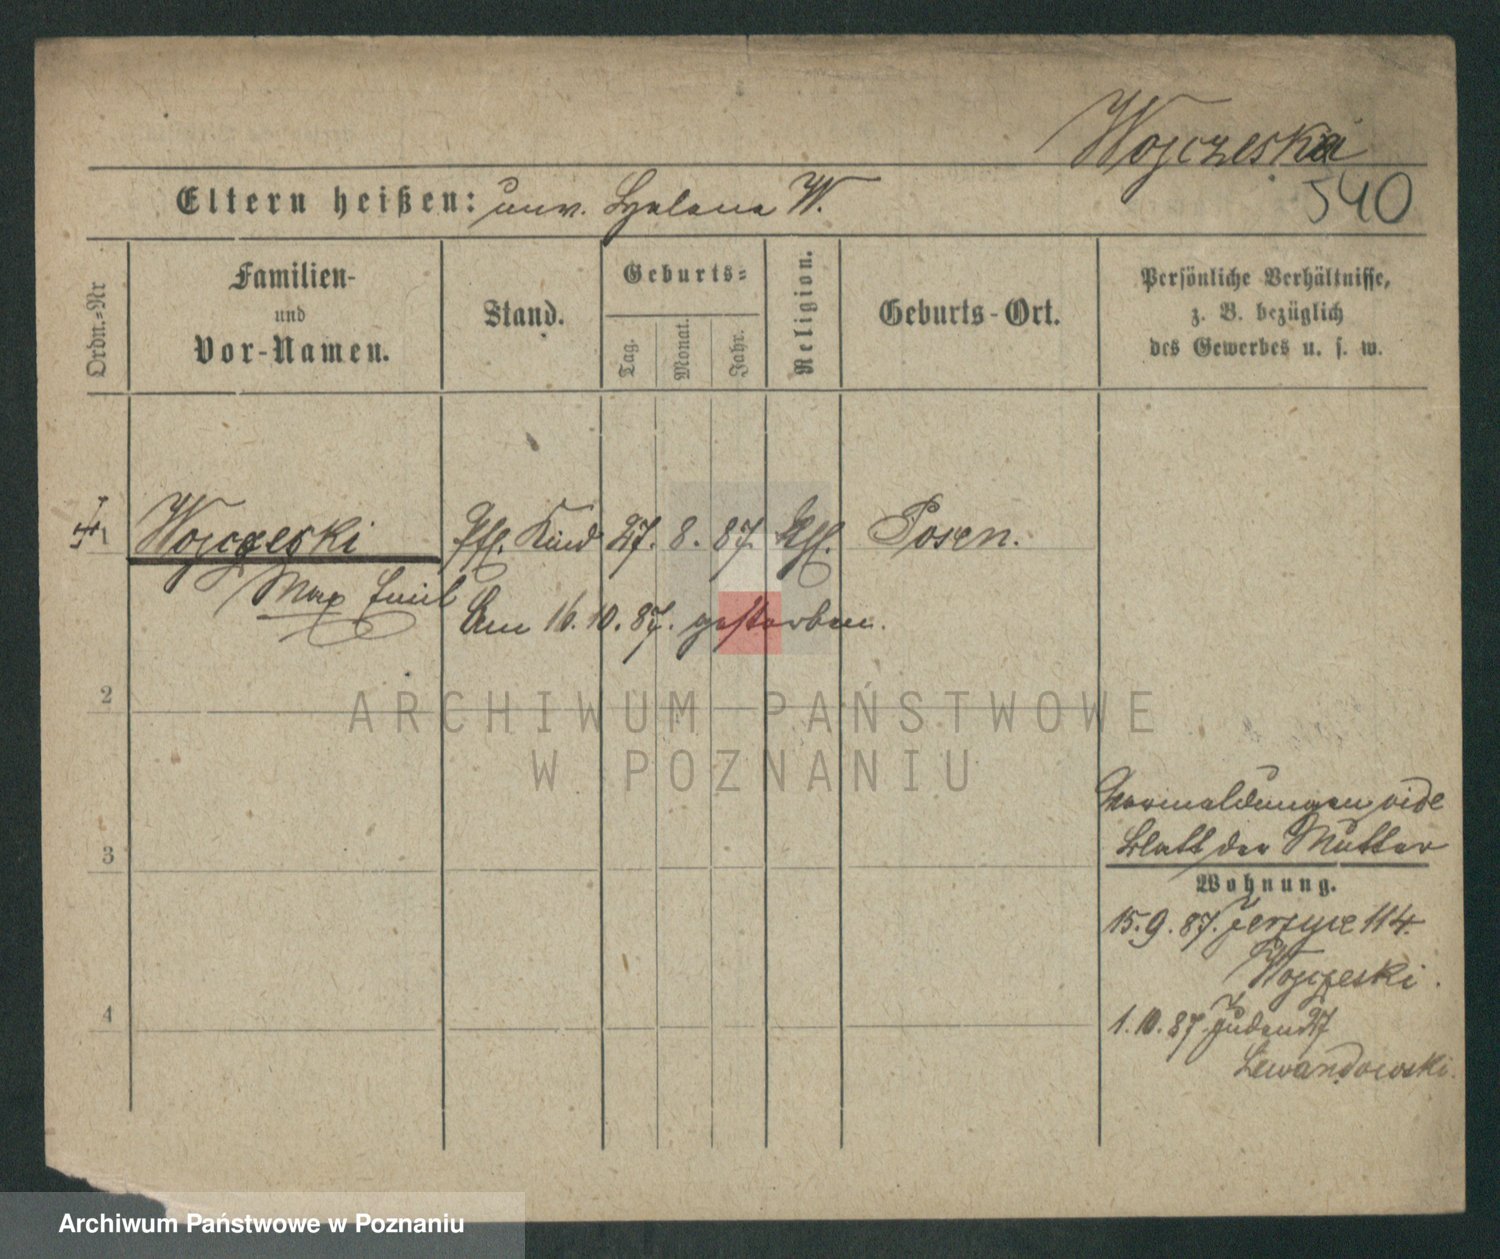 Wojczeski
540
Eltern heißen: unv. Helena W.
Ordn.-Nr
Familien-
und
Vor-Namen.
Stand.
Geburts-
Tag.
Monat.
Jahr.
Religion.
Geburts-Ort.
Persönliche Verhältnisse,
z. B. bezüglich
des Gewerbes u. s. w.
1
Wojczeski
Pfl. Kind 27. 8. 87. Posen.
Max Emil
Am 16. 10. 87. gestorben.
2
3
4
ARCHIWUM PAŃSTWOWE
W POZNANIU
vide
Blatt der Mutter
Wohnung.
15. 9. 87. Jerzyce 114.
Wojczeski.
1. 10. 87. Juden 27
Lewandowski.
Archiwum Państwowe w Poznaniu